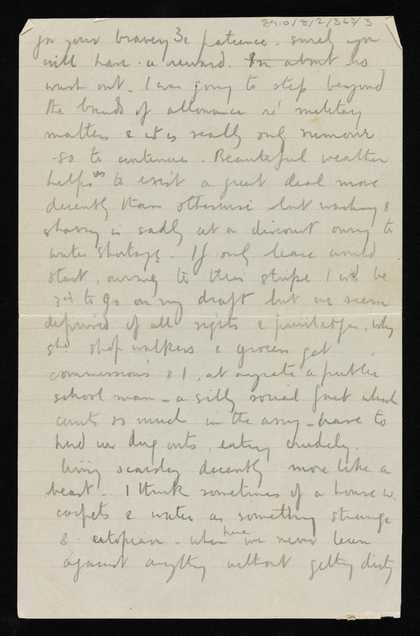 for your bravery & patience. surely you
will have a reward. In about
wash out. I am going to step beyond
the bounds of allowance re' military
matters & it is really only rumour
- so to continue. Beautiful weather
helps us to exist a great deal more
decently than otherwise but washing &
shaving is sadly at a discount owing to
water shortage. If only leave would
start, owing to this stripe I wd be
3rd to go on my draft but we seem
deprived of all rights & privileges, why
shd shop walkers & grocers get
commissions & I, at any rate a public
school man - a silly social fact which
counts so much in the army - have to
herd in dug outs, eating crudely,
living scarcely decently more like a
beast. I think sometimes of a house w.
carpets & water as something strange
& utopian - when here we never lean
against anything without getting dirty